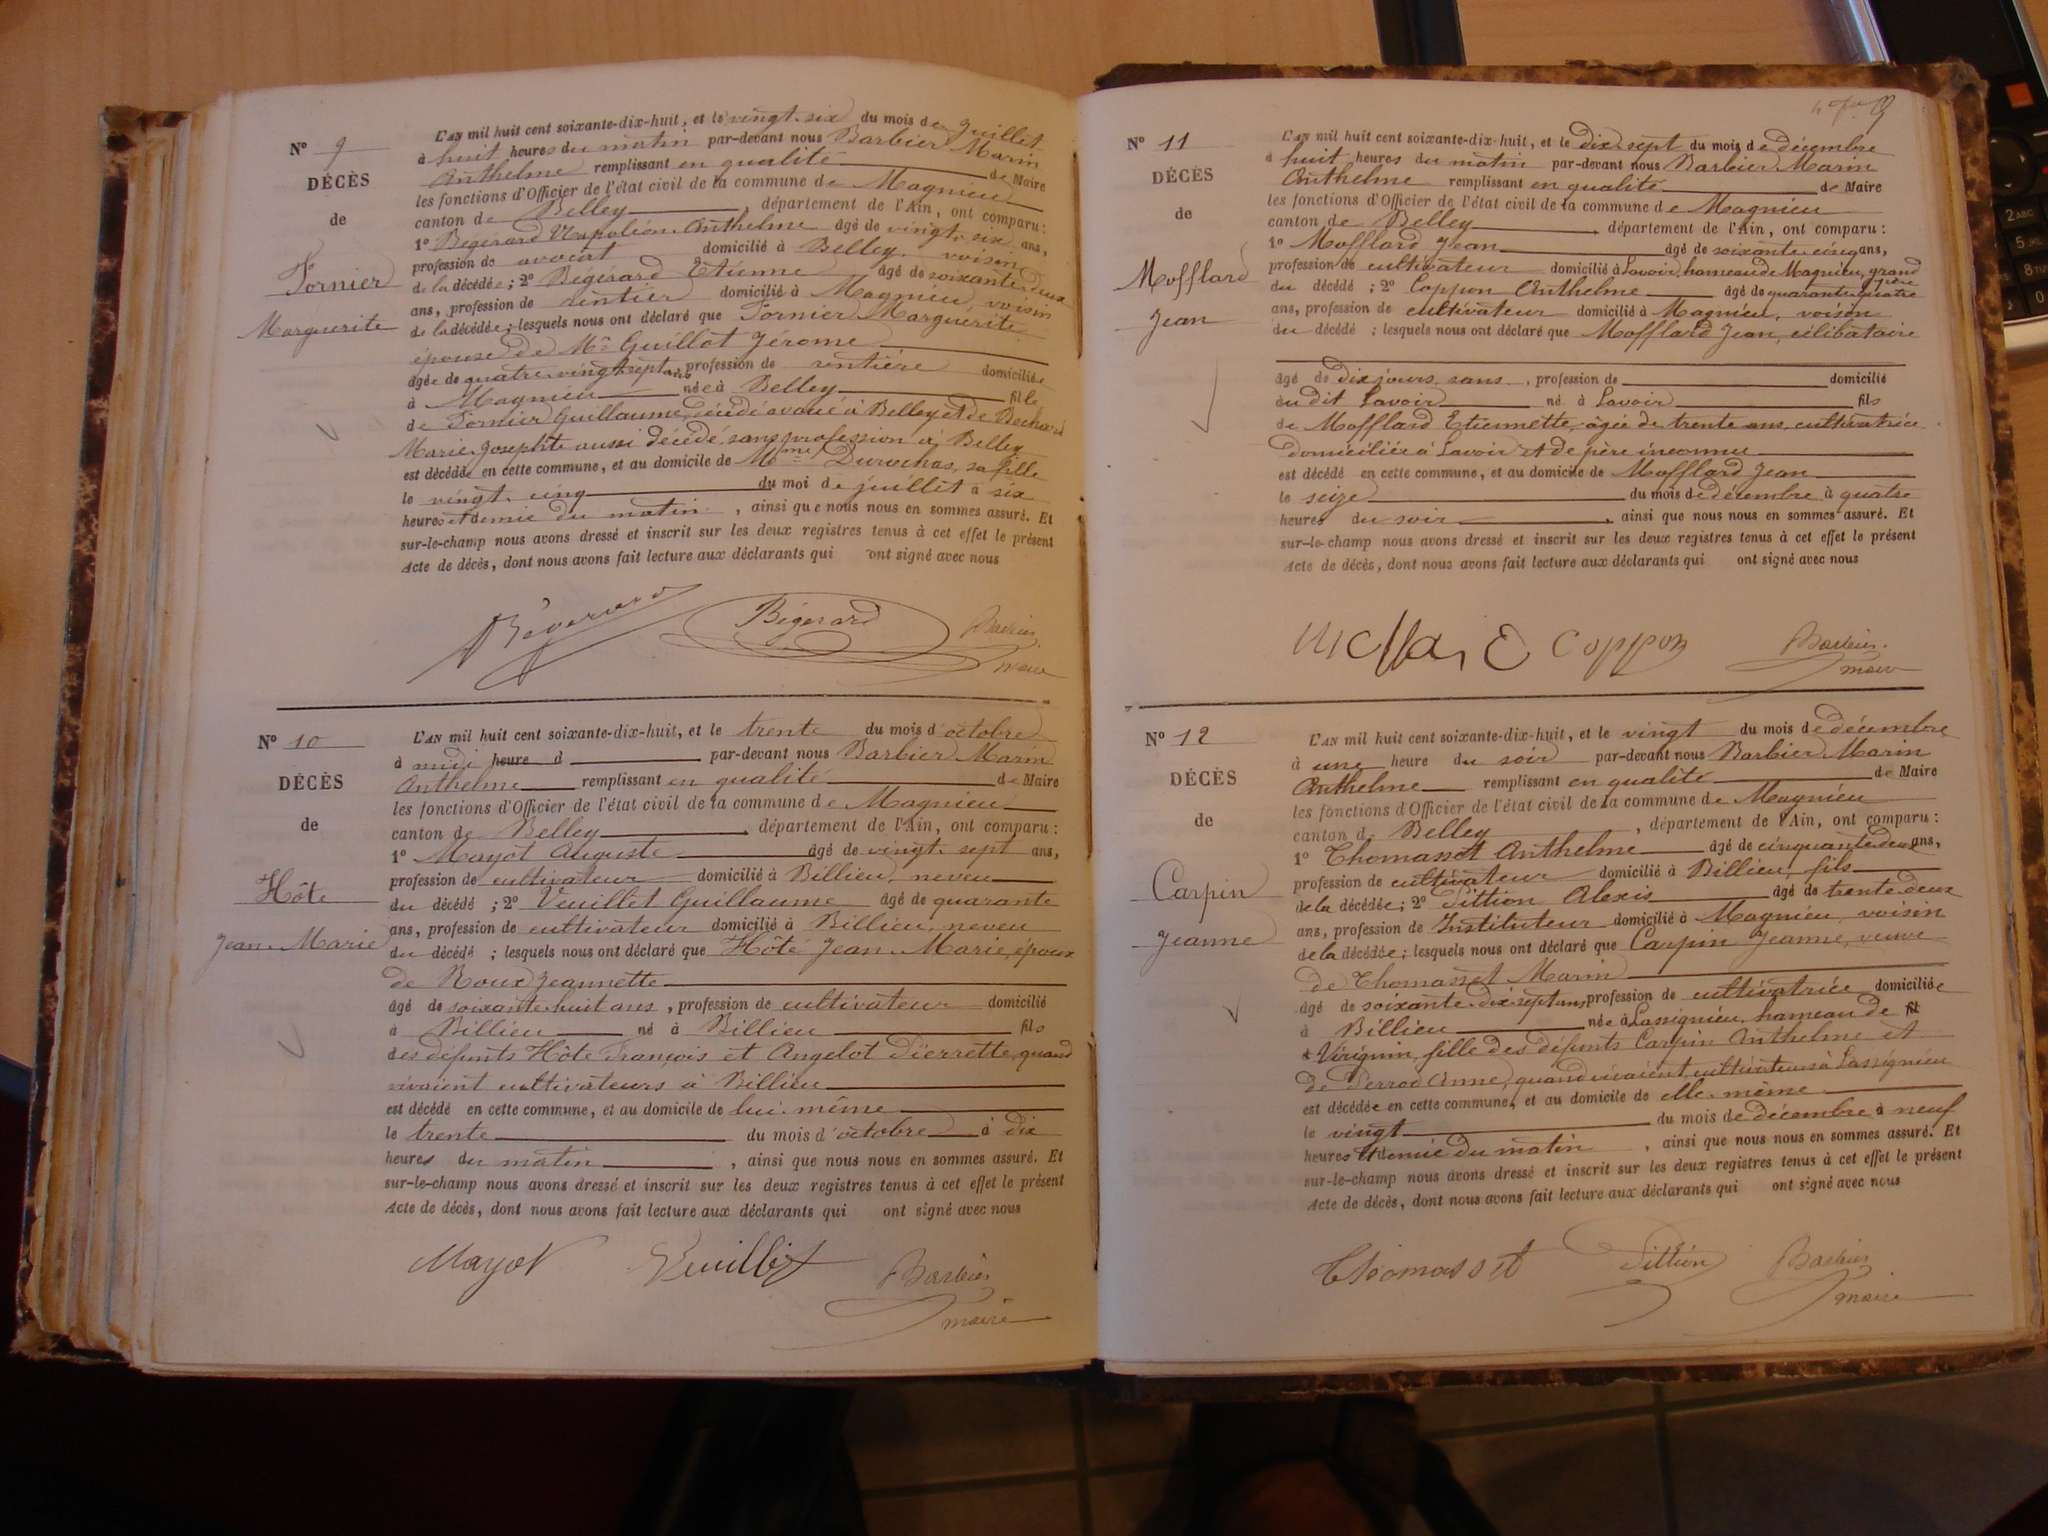 Nº 9
DÉCÈS
de
Fornier
Marguerite
L'AN mil huit cent soixante-dix-huit, et le vingt-six du mois de Juillet
à huit heures du matin par-devant nous Barbier Marin
Anthelme remplissant en qualité de Maire
les fonctions d'Officier de l'état civil de la commune de Magnieu
canton de Belley, département de l'Ain, ont comparu :
1º Bégérard Napoléon Anthelme âgé de vingt-six ans,
profession de avocat domicilié à Belley, voisin
de la décédée ; 2º Bégérard Etienne âgé de soixante-deux
ans, profession de rentier domicilié à Magnieu, voisin
de la décédée ; lesquels nous ont déclaré que Fornier Marguérite
épouse de Mr Guillot Jérome
âgée de quatre-vingt-sept ans profession de rentière domiciliée
à Magnieu née à Belley fille
de Fornier Guillaume, décédé avoué à Belley et de
Marie Josephte aussi décédé, sans profession à Belley
est décédée en cette commune, et au domicile de Mme Durochas, sa fille
le vingt-cinq du moi de juillet à six
heures et demie du matin, ainsi que nous nous en sommes assuré. Et
sur-le-champ nous avons dressé et inscrit sur les deux registres tenus à cet effet le présent
Acte de décès, dont nous avons fait lecture aux déclarants qui ont signé avec nous
Bégérard Barbier
maire
Nº 10
DÉCÈS
de
Hôte
Jean-Marie
L'AN mil huit cent soixante-dix-huit, et le trente du mois d'octobre
à midi heure d par-devant nous Barbier Marin
Anthelme remplissant en qualité de Maire
les fonctions d'Officier de l'état civil de la commune de Magnieu
canton de Belley, département de l'Ain, ont comparu :
1º Mayot Auguste âgé de vingt-sept ans,
profession de cultivateur domicilié à Billieu, neveu
du décédé ; 2º Veuillet Guillaume âgé de quarante
ans, profession de cultivateur domicilié à Billieu, neveu
du décédé ; lesquels nous ont déclaré que Hôte Jean-Marie, époux
de Roux Jeannette
âgé de soixante-huit ans, profession de cultivateur domicilié
à Billieu né à Billieu fils
des défunts Hôte François et Angelot Pierrette, quand
vivaient cultivateurs à Billieu
est décédé en cette commune, et au domicile de lui-même
le trente du mois d'octobre à dix
heures du matin, ainsi que nous nous en sommes assuré. Et
sur-le-champ nous avons dressé et inscrit sur les deux registres tenus à cet effet le présent
Acte de décès, dont nous avons fait lecture aux déclarants qui ont signé avec nous
Mayot Veuillet Barbier
maire
Nº 11
DÉCÈS
de
Mofflard
Jean
L'AN mil huit cent soixante-dix-huit, et le dix-sept du mois de décembre
à huit heures du matin par-devant nous Barbier Marin
Anthelme remplissant en qualité de Maire
les fonctions d'Officier de l'état civil de la commune de Magnieu
canton de Belley, département de l'Ain, ont comparu :
1º Mofflard Jean âgé de soixante-cinq ans,
profession de cultivateur domicilié à Lavoir, hameau de Magnieu, grand père
du décédé ; 2º Coppon Anthelme âgé de quarante-quatre
ans, profession de cultivateur domicilié à Magnieu, voisin
du décédé ; lesquels nous ont déclaré que Mofflard Jean, célibataire
âgé de dix jours, sans, profession de domicilié
au dit Lavoir né à Lavoir fils
de Mofflard Etiennette, âgée de trente ans, cultivatrice
domiciliée à Lavoir et de père inconnu
est décédé en cette commune, et au domicile de Mofflard Jean
le seize du mois de décembre à quatre
heures du soir, ainsi que nous nous en sommes assuré. Et
sur-le-champ nous avons dressé et inscrit sur les deux registres tenus à cet effet le présent
Acte de décès, dont nous avons fait lecture aux déclarants qui ont signé avec nous
Coppon Barbier
maire
Nº 12
DÉCÈS
de
Carpin
Jeanne
L'AN mil huit cent soixante-dix-huit, et le vingt du mois de décembre
à une heure du soir par-devant nous Barbier Marin
Anthelme remplissant en qualité de Maire
les fonctions d'Officier de l'état civil de la commune de Magnieu
canton de Belley, département de l'Ain, ont comparu :
1º Thomasset Anthelme âgé de cinquante-deux ans,
profession de cultivateur domicilié à Billieu, fils
de la décédée ; 2º Pittion Alexis âgé de trente-deux
ans, profession de Instituteur domicilié à Magnieu, voisin
de la décédée ; lesquels nous ont déclaré que Carpin Jeanne, veuve
de Thomasset Marin
âgé de soixante-dix-sept ans profession de cultivatrice domiciliée
à Billieu née à Lassignieu, hameau de fil
Virignin, fille des défunts Carpin Anthelme et
de Perrod Anne, quand vivaient cultivateurs à Lassignieu
est décédée en cette commune, et au domicile de elle-même
le vingt du mois de décembre à neuf
heures et demie du matin, ainsi que nous nous en sommes assuré. Et
sur-le-champ nous avons dressé et inscrit sur les deux registres tenus à cet effet le présent
Acte de décès, dont nous avons fait lecture aux déclarants qui ont signé avec nous
Thomasset Pittion Barbier
maire
2 ABC
0